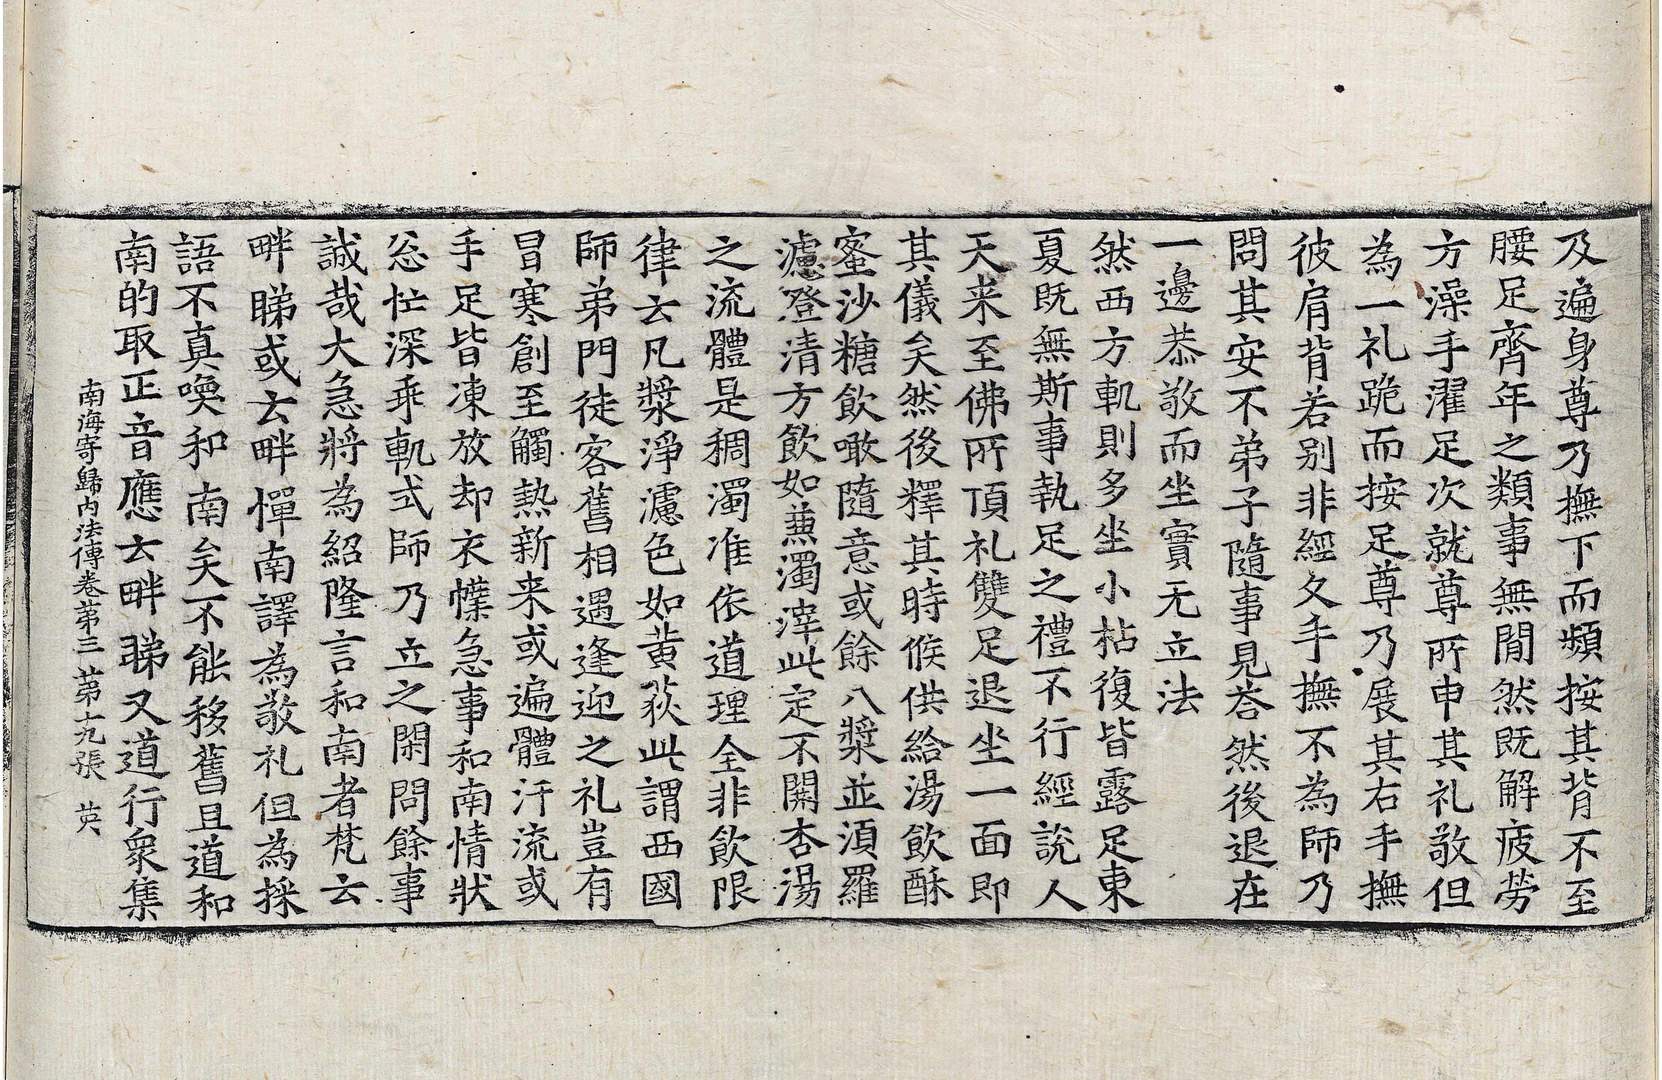 及遍身尊乃撫下而頻按其背不至
腰足齊年之類事無閒然既解疲勞
方澡手濯足次就尊所申其礼敬但
為一礼跪而按足尊乃展其右手撫
彼肩背若别非經久手撫不為師乃
問其安不弟子隨事見荅然後退在
一邊恭敬而坐實无立法
然西方軌則多坐小枯復皆露足東
夏既無斯事執足之禮不行經說人
天来至佛所頂礼雙足退坐一面即
其儀矣然後釋其時候供給湯飲酥
蜜沙糖飲噉隨意或餘八漿並須羅
濾澄清方飲如蒹濁滓此定不開杏湯
之流體是稠濁准依道理全非飲限
律云凡漿淨濾色如黄荻此謂西國
師弟門徒客舊相遇逢迎之礼豈有
冒寒創至觸熱新来或遍體汗流或
手足皆凍放却衣幞急事和南情狀
忩忙深乖軌式師乃立之閑問餘事
誠哉大急將為紹隆言和南者梵云
畔睇或云畔憚南譯為敬礼但為採
語不真喚和南矣不能移舊且道和
南的取正音應云畔睇又道行衆集
南海寄歸内法傳卷第三 苐十九張 英